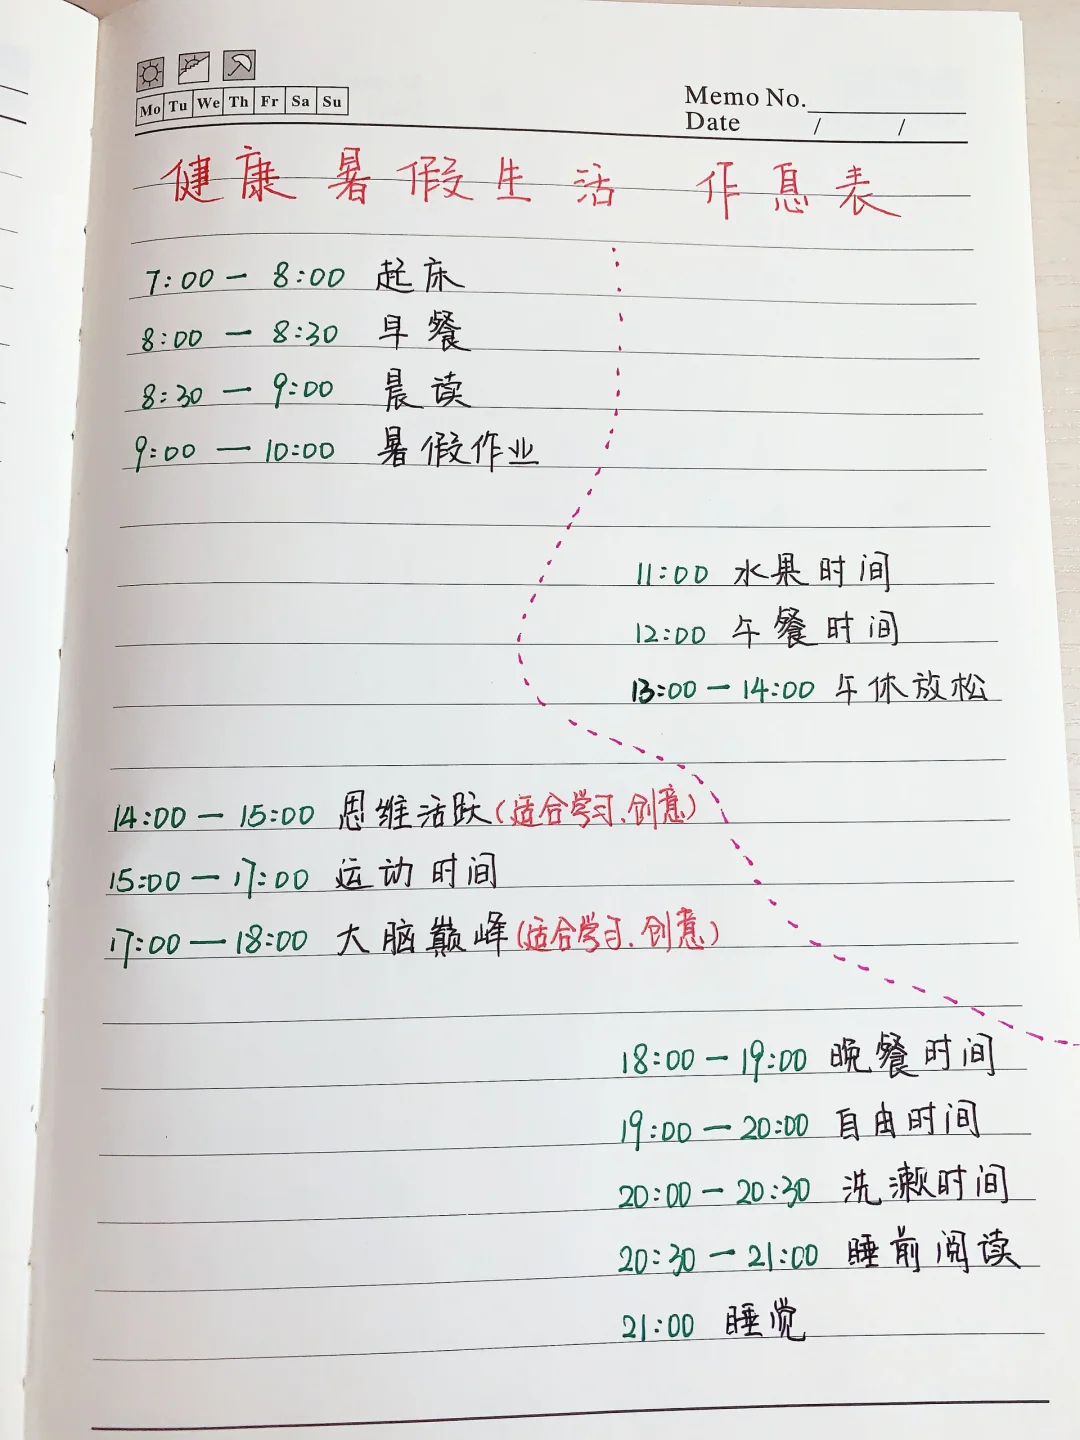 Mo Tu We Th Fr Sa Su
Memo No.
Date / /
健康暑假生活 作息表
7:00 — 8:00 起床
8:00 — 8:30 早餐
8:30 — 9:00 晨读
9:00 — 10:00 暑假作业
11:00 水果时间
12:00 午餐时间
13:00 — 14:00 午休放松
14:00 — 15:00 思维活跃(适合学习、创意)
15:00 — 17:00 运动时间
17:00 — 18:00 大脑巅峰(适合学习、创意)
18:00 — 19:00 晚餐时间
19:00 — 20:00 自由时间
20:00 — 20:30 洗漱时间
20:30 — 21:00 睡前阅读
21:00 睡觉